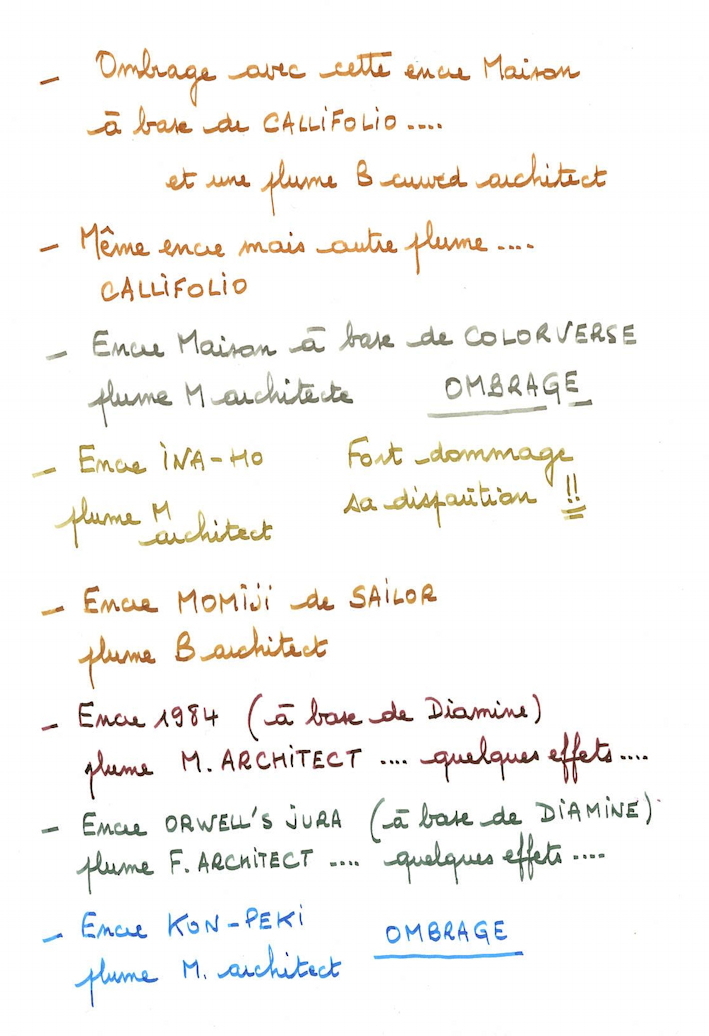 - Ombrage avec cette encre Maison
à base de CALLIFOLIO ....
et une plume B curved architect
- Même encre mais autre plume ....
CALLIFOLIO
- Encre Maison à base de COLORVERSE
plume M architecte OMBRAGE
- Encre INA-HO Fort dommage
plume M sa disparition !!
architect
- Encre MOMIJI de SAILOR
plume B architect
- Encre 1984 (à base de Diamine)
plume M. ARCHITECT .... quelques effets ....
- Encre ORWELL'S JURA (à base de DIAMINE)
plume F. ARCHITECT .... quelques effets ....
- Encre KON-PEKI OMBRAGE
plume M. architect